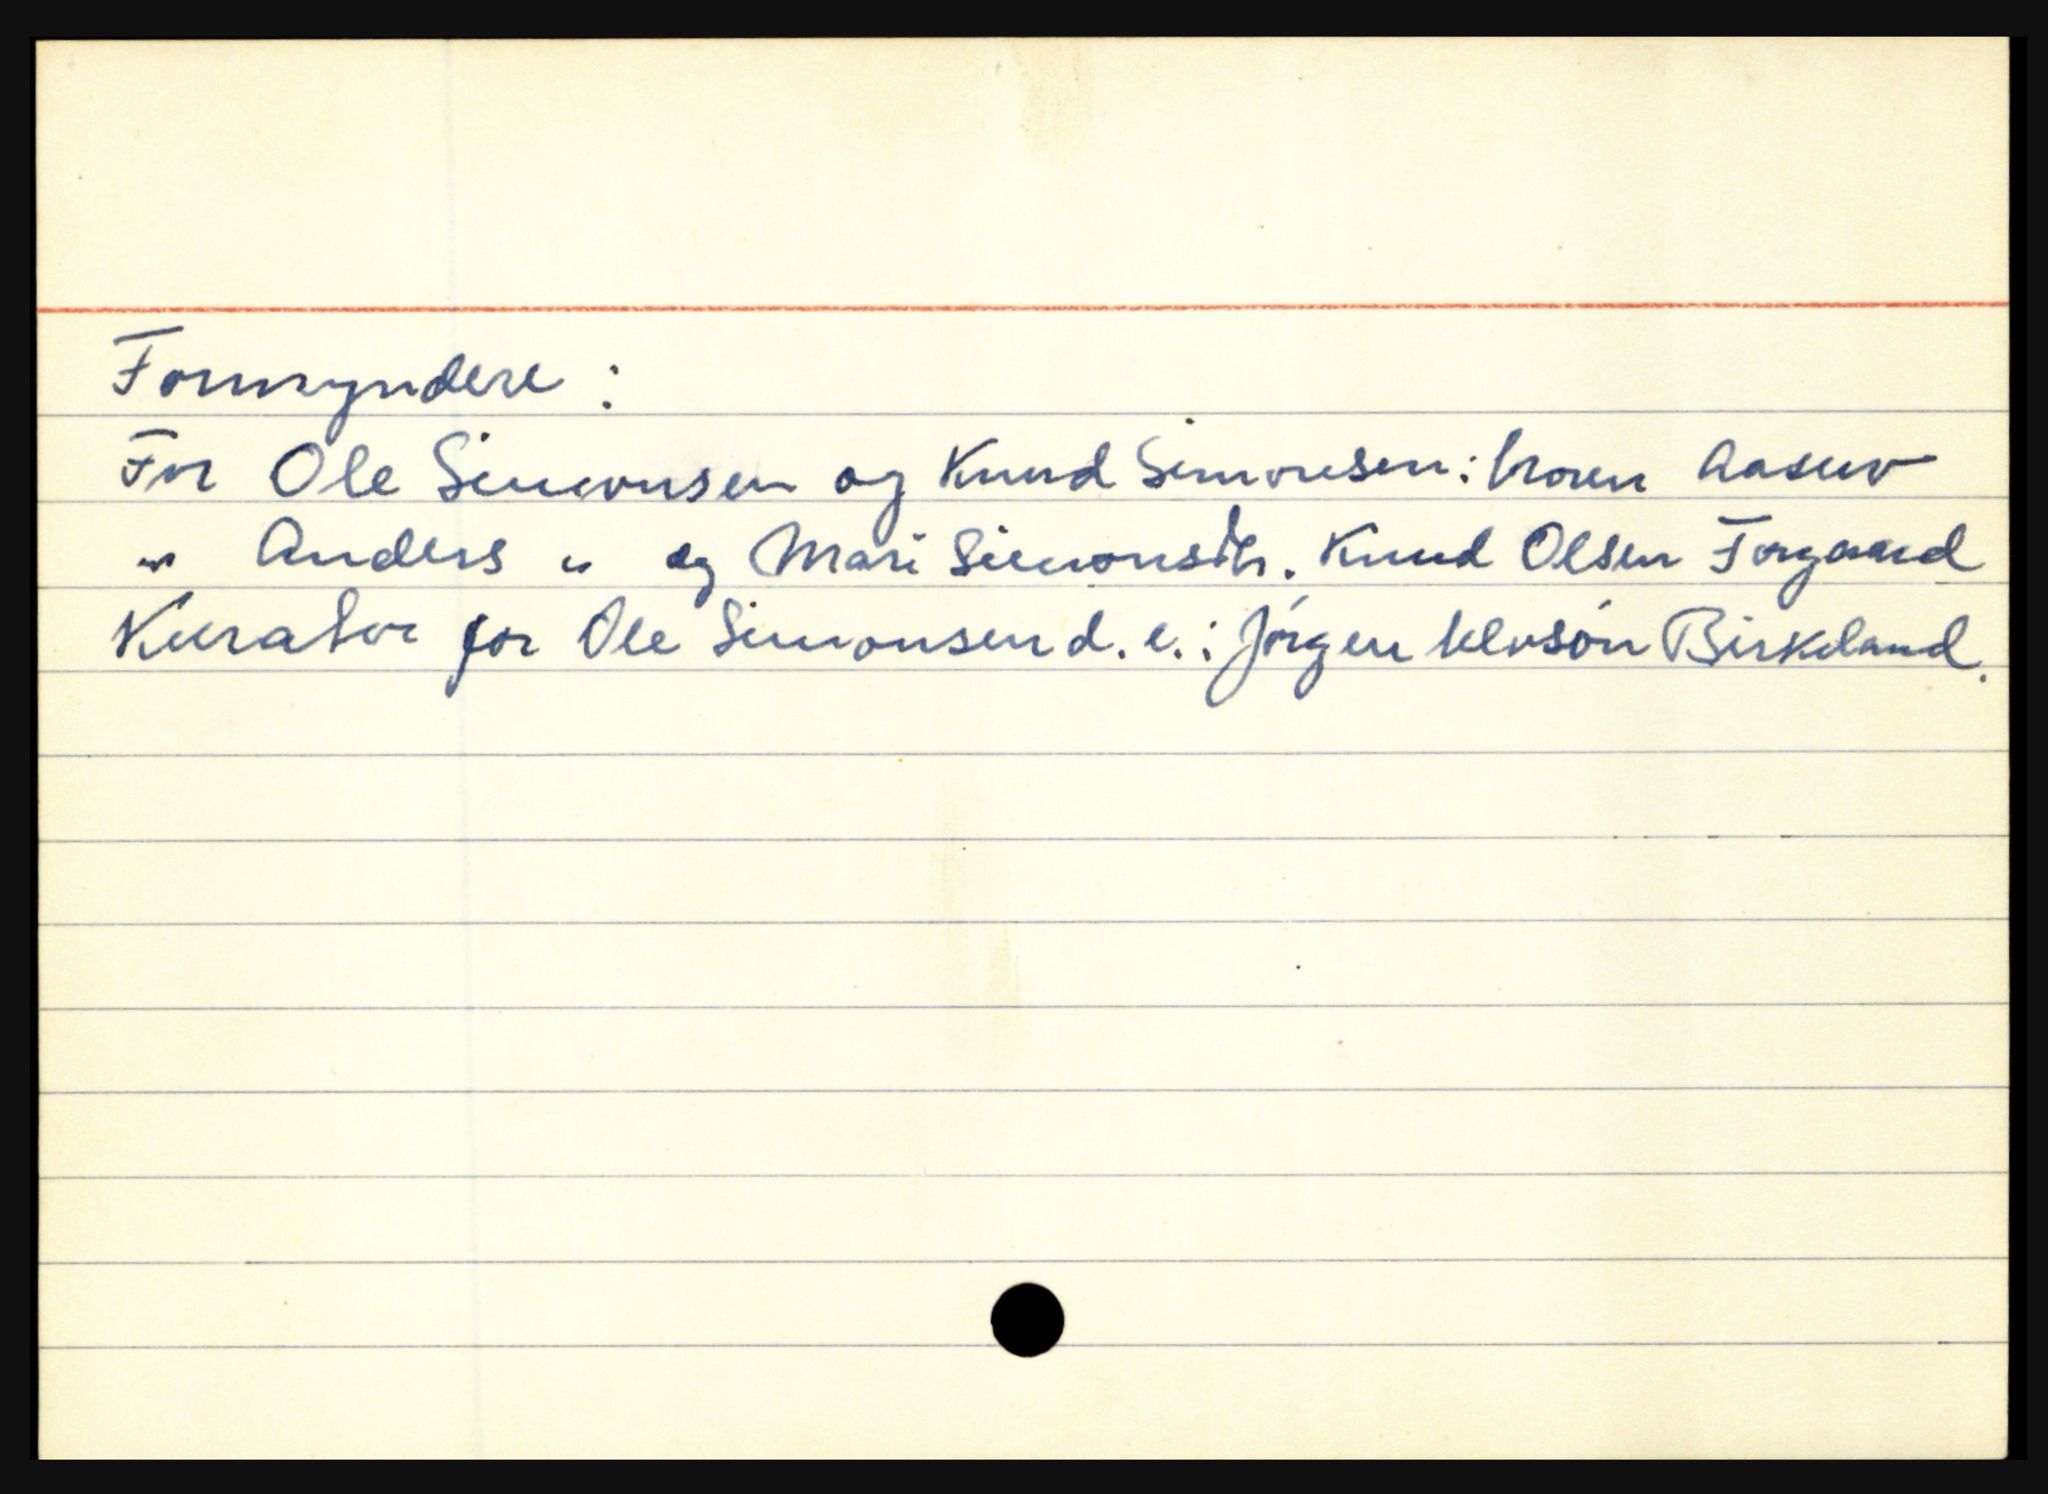 Formyndere :
For Ole Simonsen og Knud Simonsen : broren Aasuv
" Anders " og Mari Simonsdtr. Knud Olsen Torgaard
Kurator for Ole Simonsen d. e. : Jörgen Ulvsön Birkeland.